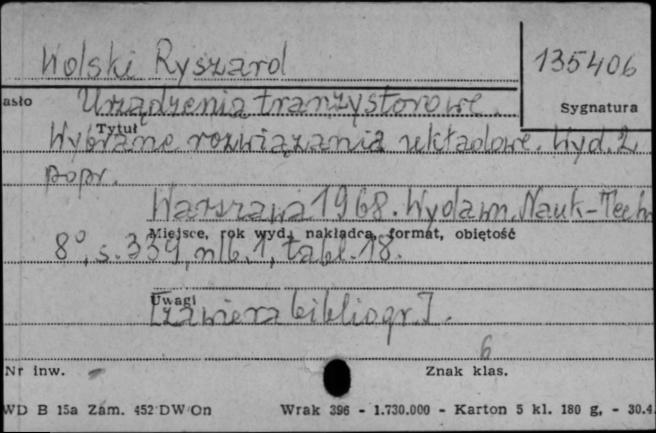 Wolski Ryszard
135406
asło
Urządzenia tranzystorowe.
Sygnatura
Tytuł
Wybrane rozwiązania układowe. Wyd. 2
popr.
Warszawa 1968. Wydawn. Nauk-Techn
Miejsce, rok wyd., nakładca, format, obiętość
8°, s. 339, nlb. 1, tabl. 18.
Uwagi
[zawiera bibliogr.].
6
Nr inw.
Znak klas.
WD B 15a Zam. 452 DW On Wrak 396 - 1.730.000 - Karton 5 kl. 180 g, - 30.4.